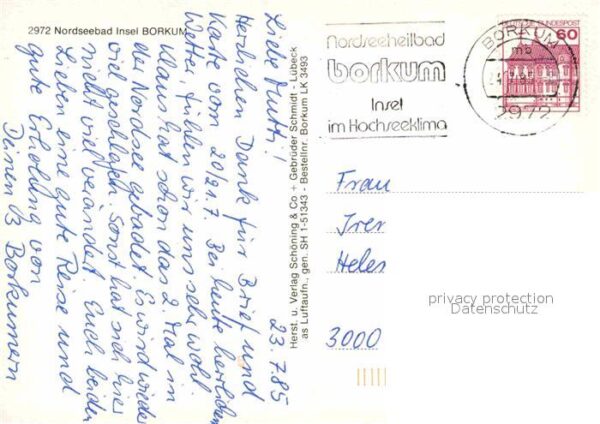 2972 Nordseebad Insel BORKUM
23.7.85
Liebe Mutti!
Herzlichen Dank für Brief und
Karte vom 20/21.7. Bei heute herrlichem
Wetter, fühlen wir uns sehr wohl.
Klaus hat schon das 2. Mal in
der Nordsee gebadet. Es wird wieder
viel geschlafen. Sonst hat sich hier
nicht viel verändert. Euch beiden
Lieben eine gute Reise und
gute Erholung von
Deinen 3 Borkumern
Herst. u. Verlag Schöning & Co + Gebrüder Schmidt - Lübeck
as Luftaufn., gen. SH 1-51343 - Bestellnr. Borkum LK 3493
Nordseeheilbad
borkum
Insel
im Hochseeklima
BORKUM
mb
2972
BUNDESPOST
60
Frau
Helen
3000
privacy protection
Datenschutz